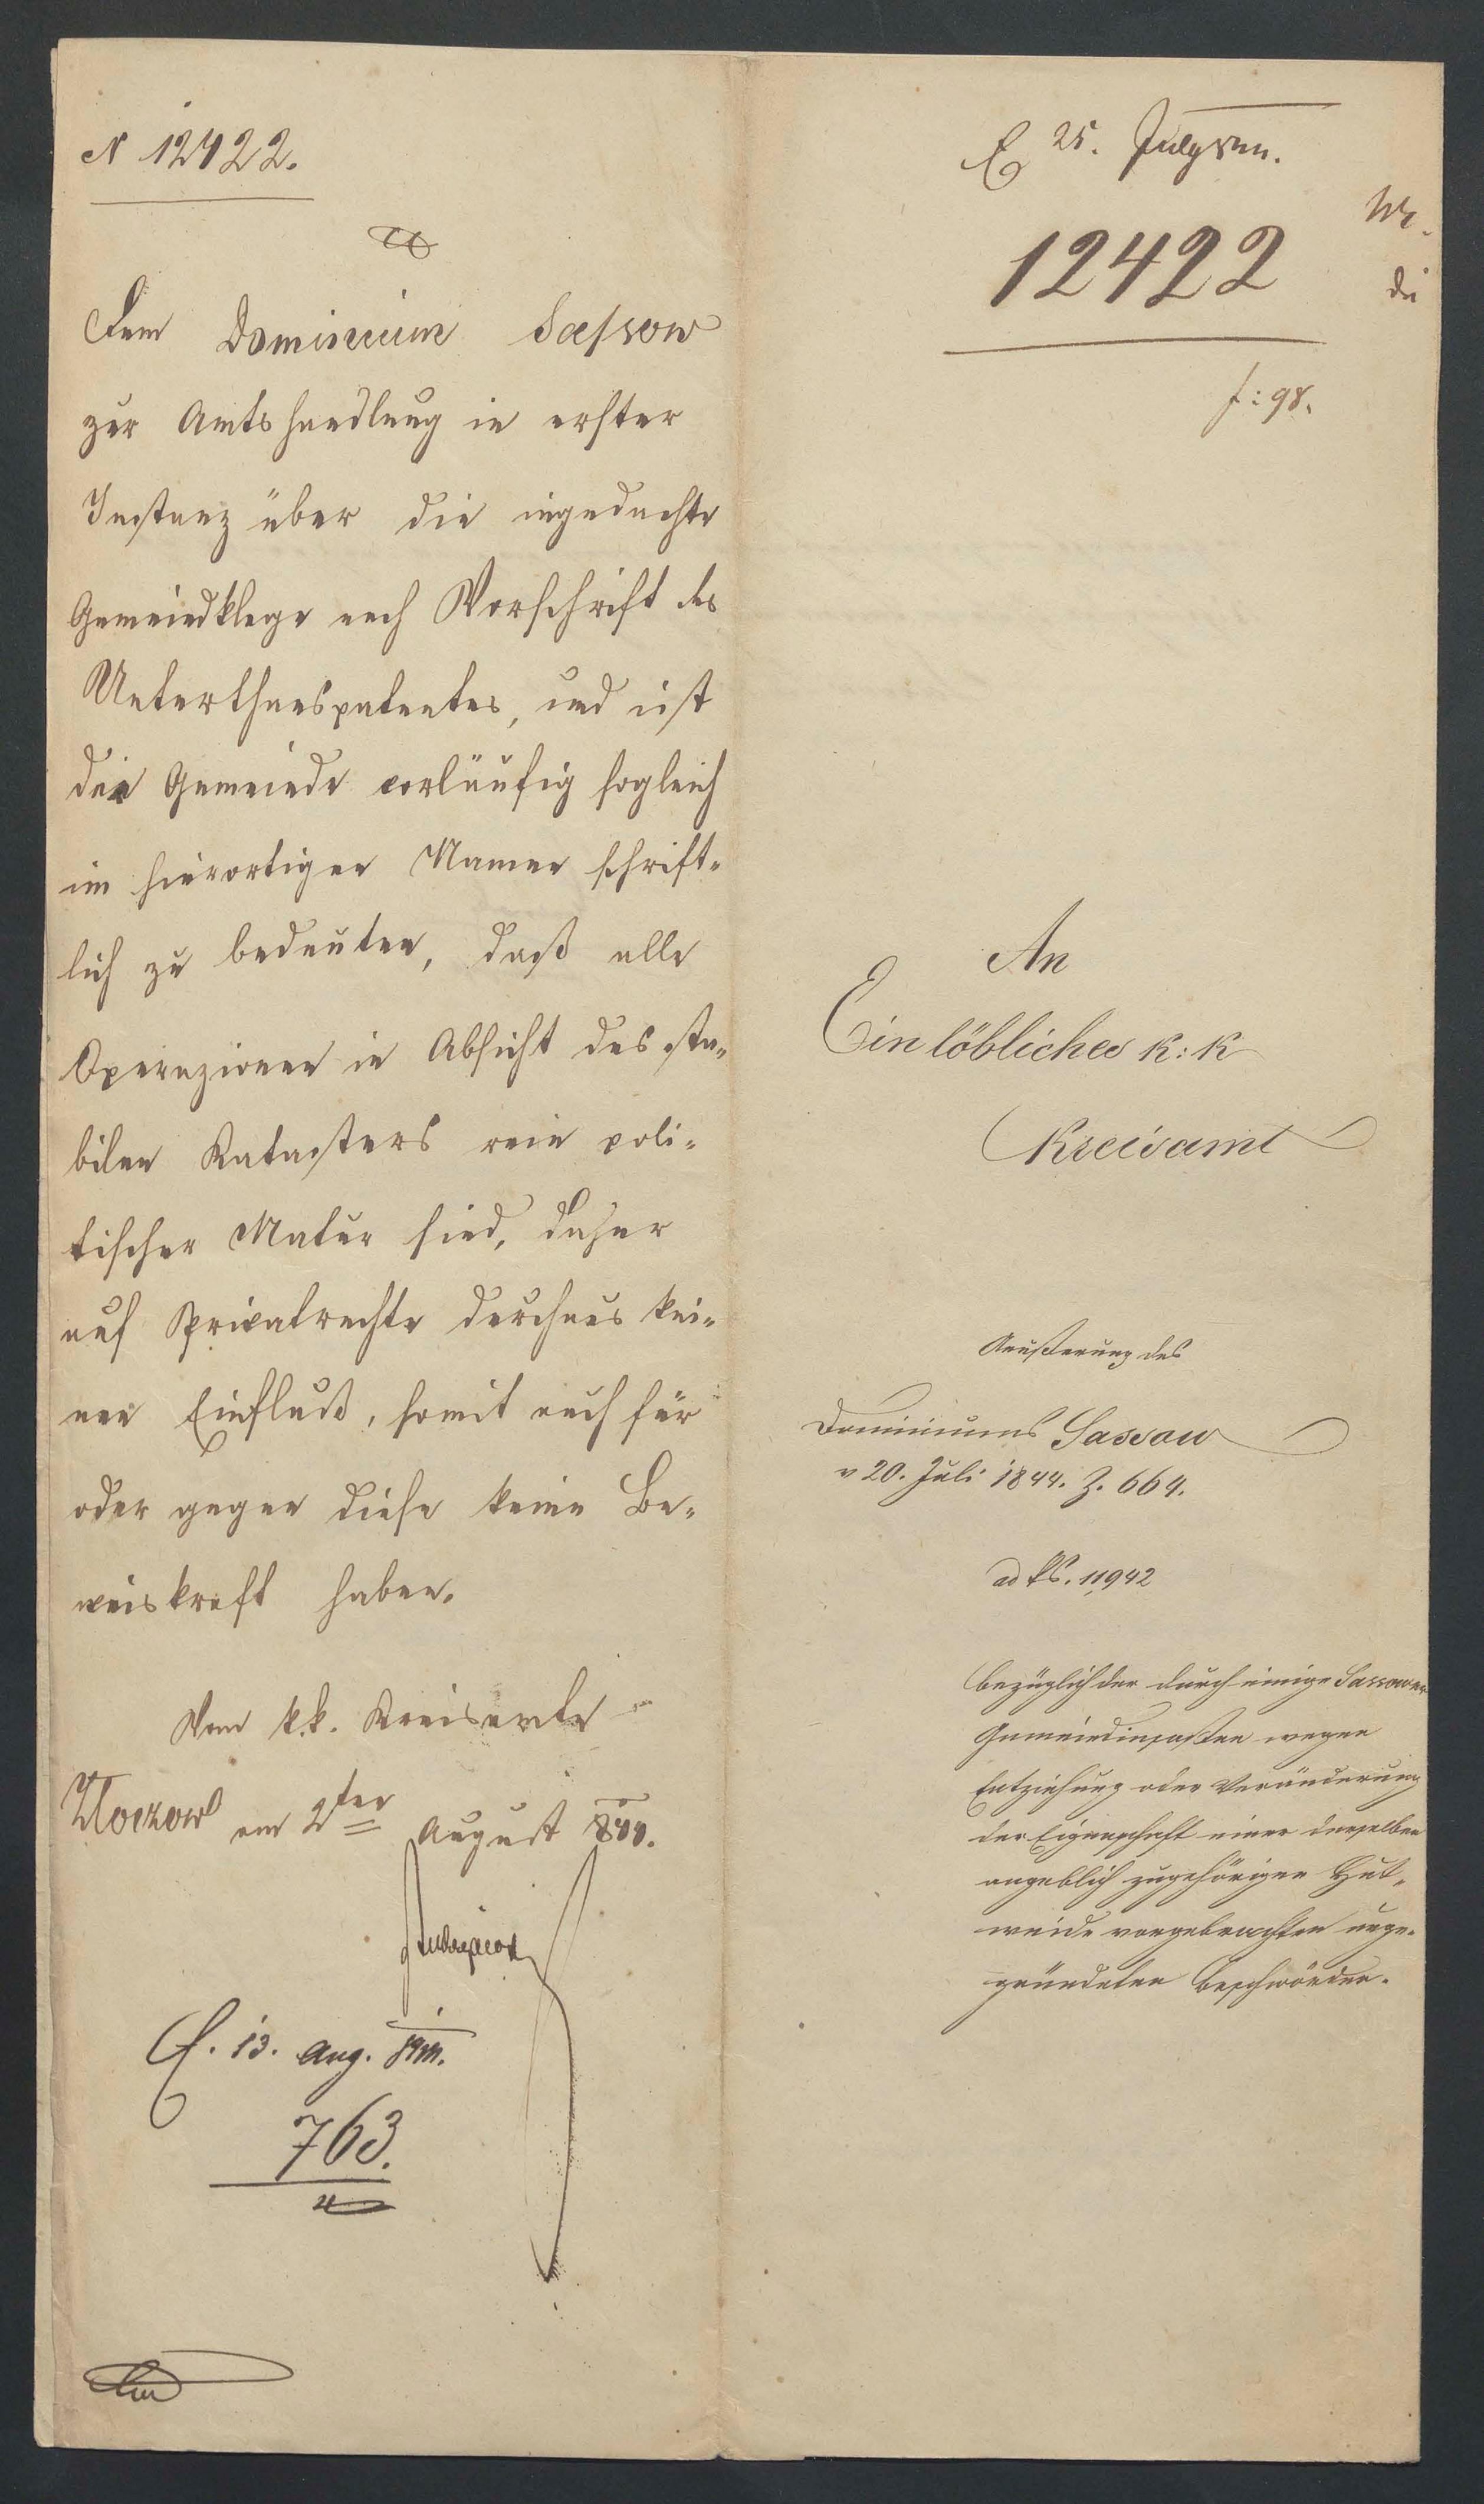 N 12422.
Dem Dominium Sassow
zur Amtshandlung in erster
Instanz über die ingedachte
Gemeindklage nach Vorschrift des
Unterthanspatentes, und ist
die Gemeinde vorläufig sogleich
im hierortigen Namen schrift-
lich zu bedeuten, daß alle
Operazionen in Absicht des sta-
bilen Katasters rein poli-
tischer Natur sind, daher
auf Privatrechte durchaus kei-
nen Einfluß, somit auch für
oder gegen diese keine Be-
weiskraft haben.
Vom k.k. Kreisamte
Złoczow am 2ten August 844.
E. 13. Aug. 844.
763.
E 25. July 844.
12422
f: 98.
An
Ein löbliches K: K
Kreisamt
Aeußerung des
Dominiums Sassow
v 20. Juli 1844. Z. 664.
ad KS. 11942
bezüglich der durch einige Sassower
Gemeindinsaßen wegen
Entziehung oder Veränderung
der Eigenschaft einer denselben
angeblich zugehörigen Hut-
weide vorgebrachten unge-
gründeten Beschwörden.